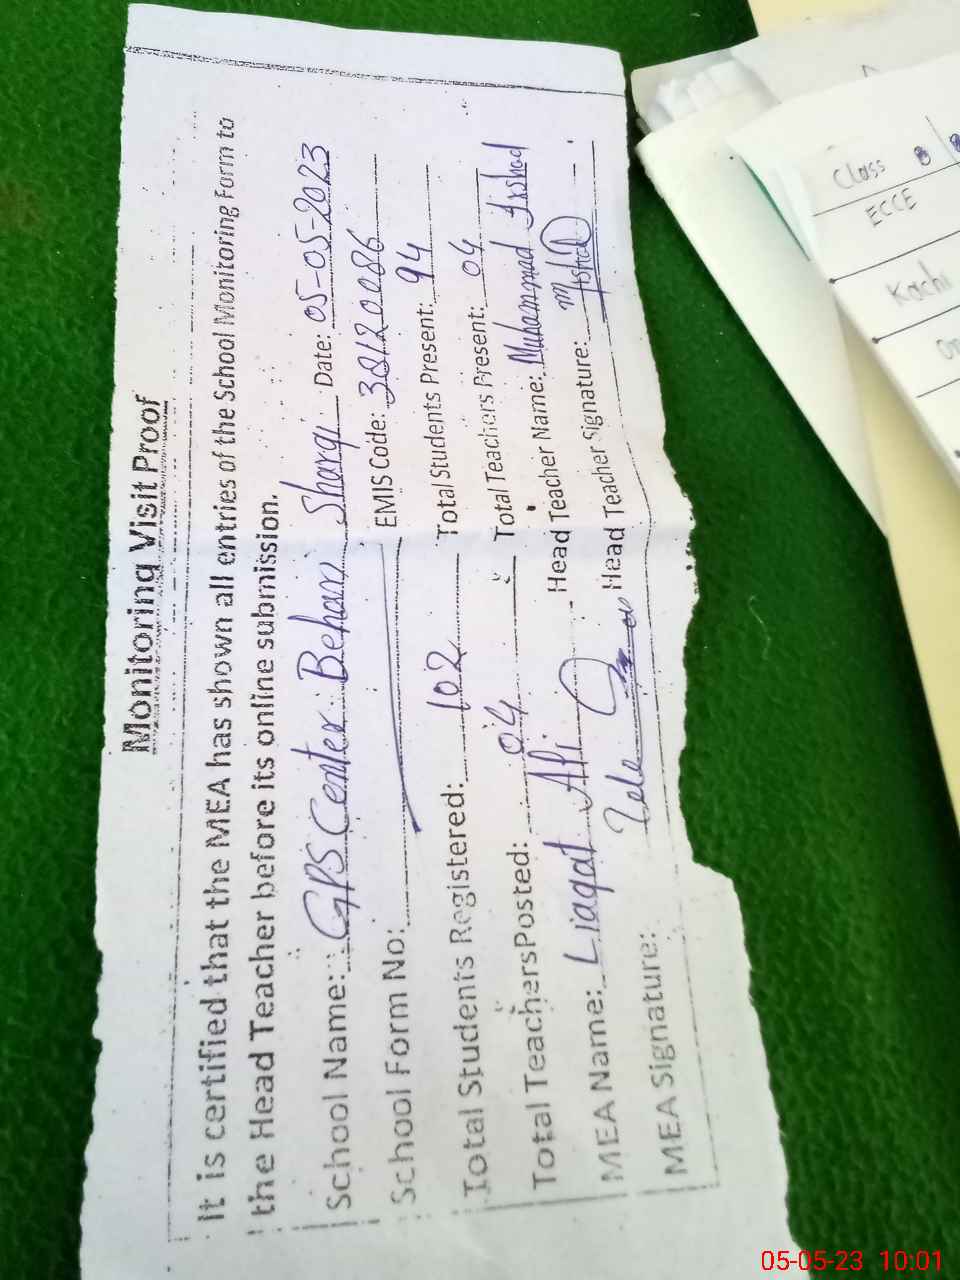 Monitoring Visit Proof
It is certified that the MEA has shown all entries of the School Monitoring Form to
the Head Teacher before its online submission.
School Name: GPS Center Behan Sharqi Date: 05-05-2023
School Form No: EMIS Code: 38120086
Total Students Registered: 102 Total Students Present: 94
Total Teachers Posted: 04 Total Teachers Present: 04
MEA Name: Liaqat Ali Head Teacher Name: Muhammad Arshad
MEA Signature: Head Teacher Signature: M Arshad
Class
ECCE
Kachi
05-05-23 10:01